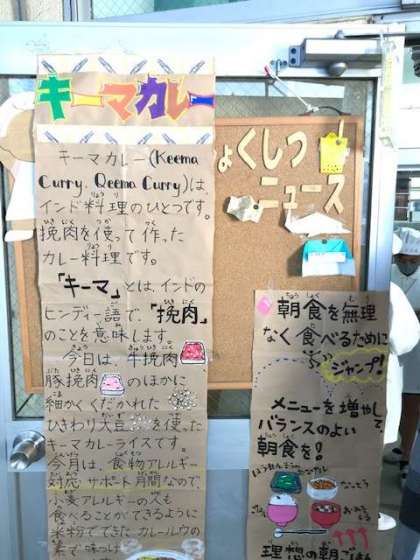 キーマカレー
キーマカレー(Keema
Curry、Qeema Curry)は、
インド料理のひとつです。
挽肉を使って作った
カレー料理です。
「キーマ」とは、インドの
ヒンディー語で、「挽肉」
のことを意味します。
今日は、牛挽肉
豚挽肉のほかに
細かくくだかれた
ひきわり大豆を使った
キーマカレーライスです。
今月は、食物アレルギー
対応サポート月間なので
小麦アレルギーの人も
食べることができるように
米粉でできたカレールウの
素で味つけ
きょくしつ
ニュース
朝食を無理
なく食べるために
ジャンプ!
メニューを増やして
バランスのよい
朝食を!
なっとう
理想の朝ごはん